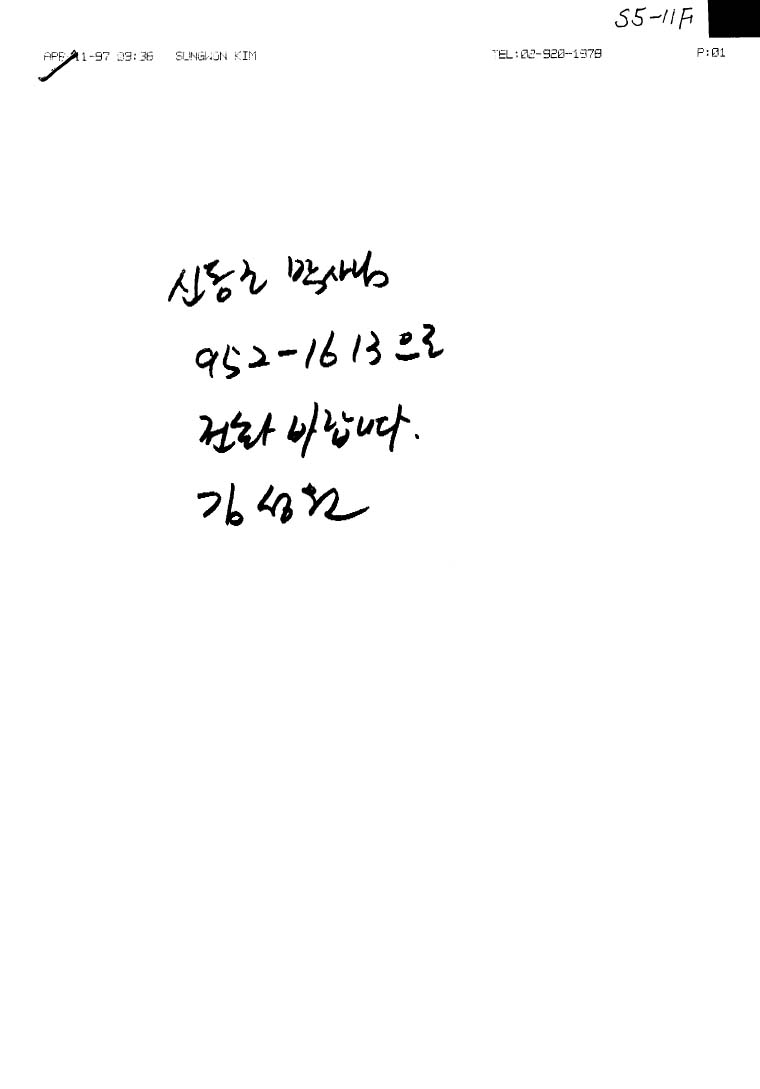 S5-11F
APR-11-97 09:36 SUNGWON KIM TEL:02-920-1979 P:01
신동조 박사님
952-1613으로
전화 바랍니다.
김성원